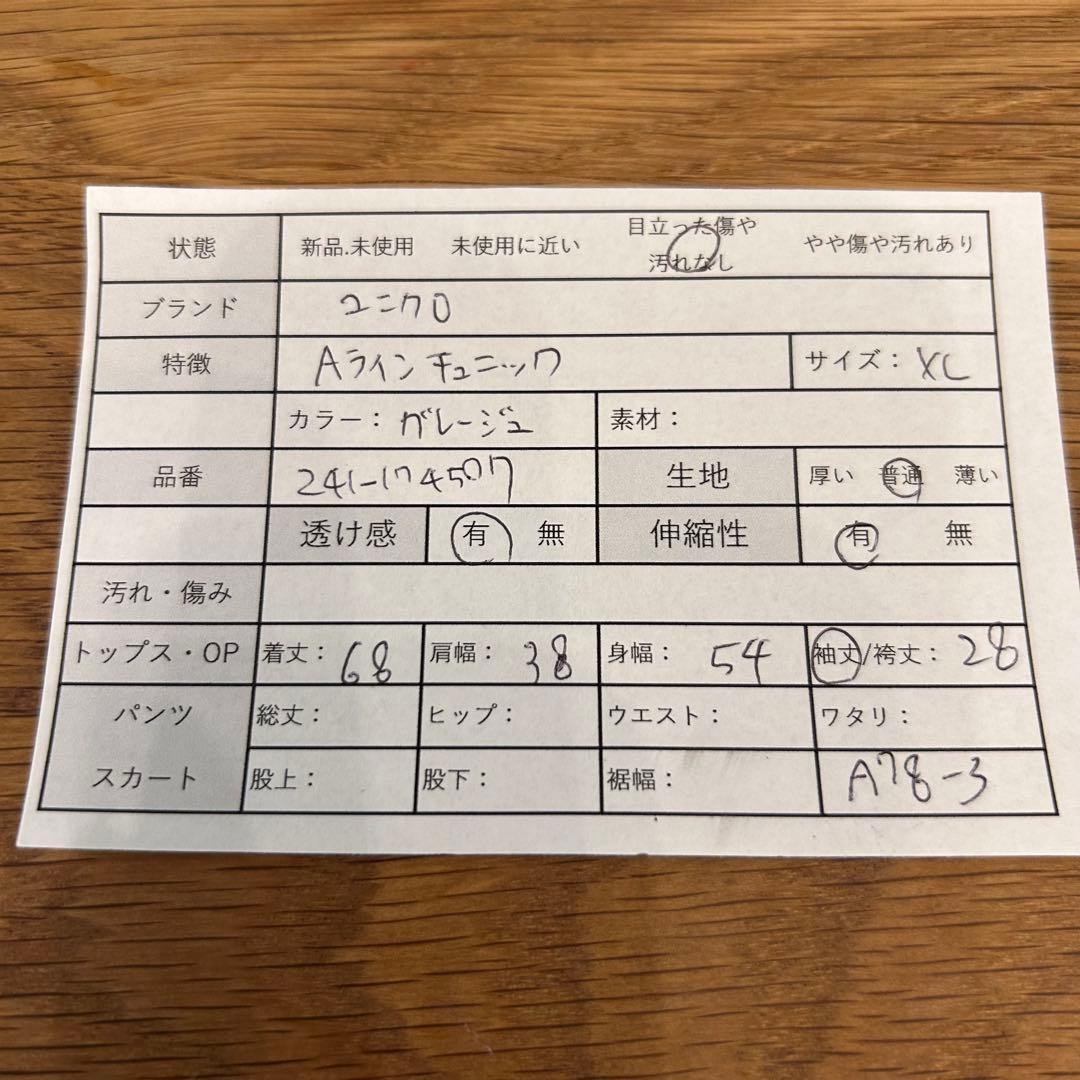 状態 新品.未使用 未使用に近い 目立った傷や汚れなし やや傷や汚れあり
ブランド ユニクロ
特徴 Aラインチュニック サイズ: XL
カラー: ガレージュ 素材:
品番 241-174507 生地 厚い 普通 薄い
透け感 有 無 伸縮性 有 無
汚れ・傷み
トップス・OP 着丈: 68 肩幅: 38 身幅: 54 袖丈/袴丈: 28
パンツ 総丈: ヒップ: ウエスト: ワタリ:
スカート 股上: 股下: 裾幅: A78-3